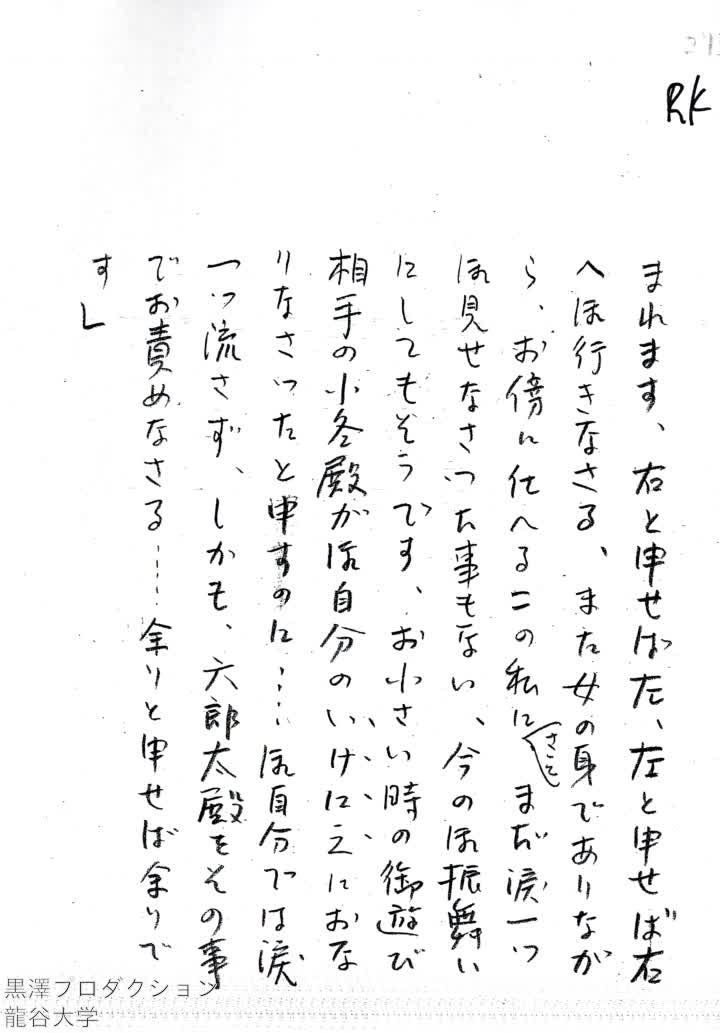 RK
まれます、右と申せば左、左と申せば右
へ行きなさる、また女の身でありなが
ら、お傍に仕へるこの私にさえまだ涙一つ
見せなさった事もない、今の御振舞い
にしてもそうです、お小さい時の御遊び
相手の小冬殿が御自分のいけにえにおな
りなさったと申すのに……御自分では涙
一つ流さず、しかも、六郎太殿をその事
でお責めなさる……余りと申せば余りで
す」
黒澤プロダクション
龍谷大学